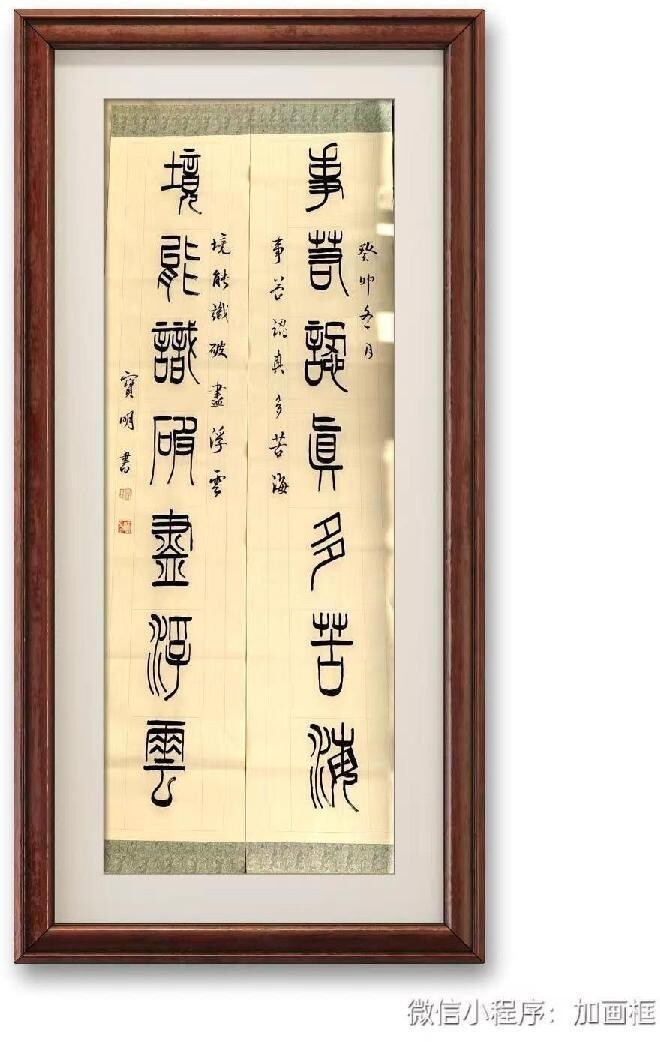 癸卯冬月
事若認真多苦海
事若認真多苦海
境能識破盡浮雲
境能識破盡浮雲
寶明書
微信小程序：加画框